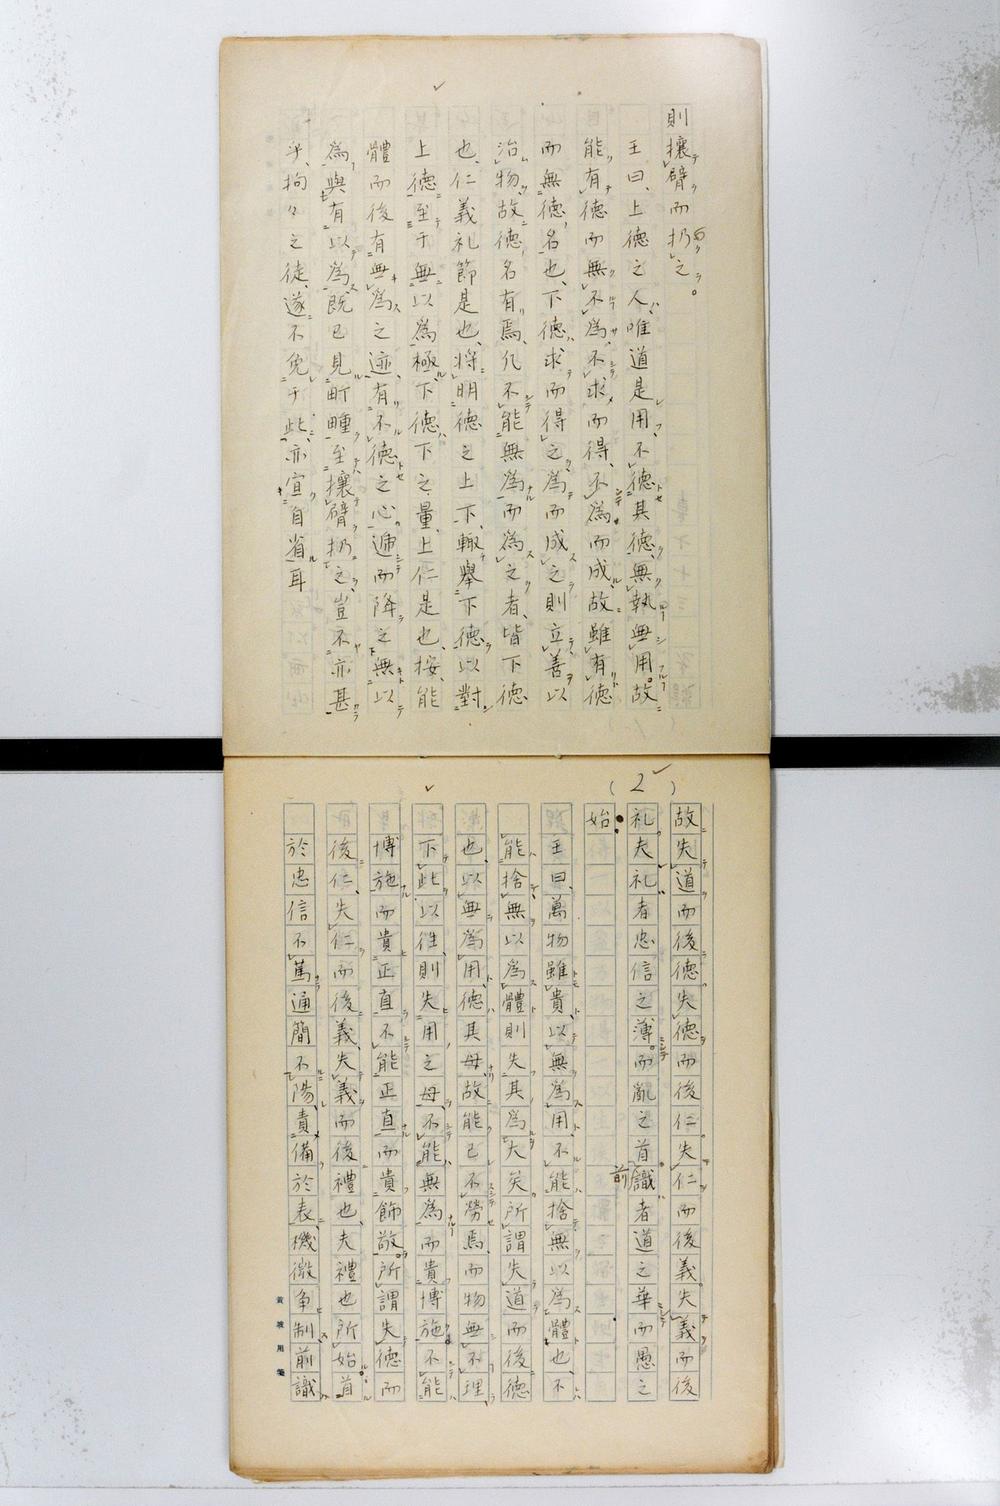 則攘臂而扔之。
王曰、上德之人唯道是用、不德其德、無執無用。故
能有德而無不為、不求而得、不為而成、故雖有德
而無德名也、下德求而得之、為而成之、則立善以
治物、故德名有焉、凡不能無為而為之者、皆下德
也、仁義礼節是也、將明德之上下、輙舉下德以對
上德至于無以為極下德下之量、上仁是也、按、能
體而後有無為之迹、有不德之心。逓而降之無以
為與有以為、既已見町畽至攘臂扔之、豈不亦甚
乎、拘々之徒、遂不免于此、亦宜自省耳
(2)
故失道而後德失德而後仁。失仁而後義。失義而後
礼。夫礼者忠信之薄。而亂之首。前識者道之華而愚之
始
王曰、萬物雖貴、以無為用、不能捨無以為體也、不
能捨無以為體則失其為大矣。所謂失道而後德
也、以無為用、德其母、故能己不勞焉、而物無不理
下此以往、則失用之母、不能無為而貴博施、不能
博施而貴正直不能正直而貴飾敬。所謂失德而
後仁、失仁而後義、失義而後禮也、夫禮也所始。首
於忠信不篤通簡不陽、責備於表、機微争制前識